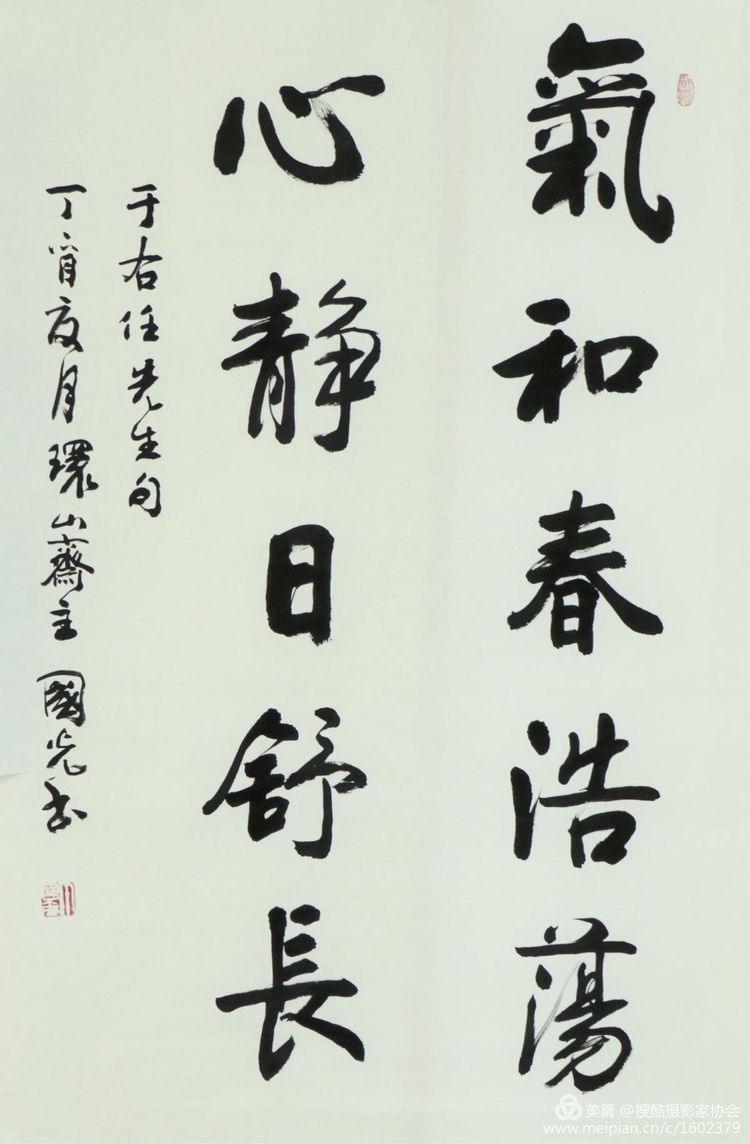 氣和春浩蕩
心静日舒長
于右任先生句
丁酉夏月環山齋主國光书
美篇 @搜酷摄影家协会
www.meipian.cn/c/1602379